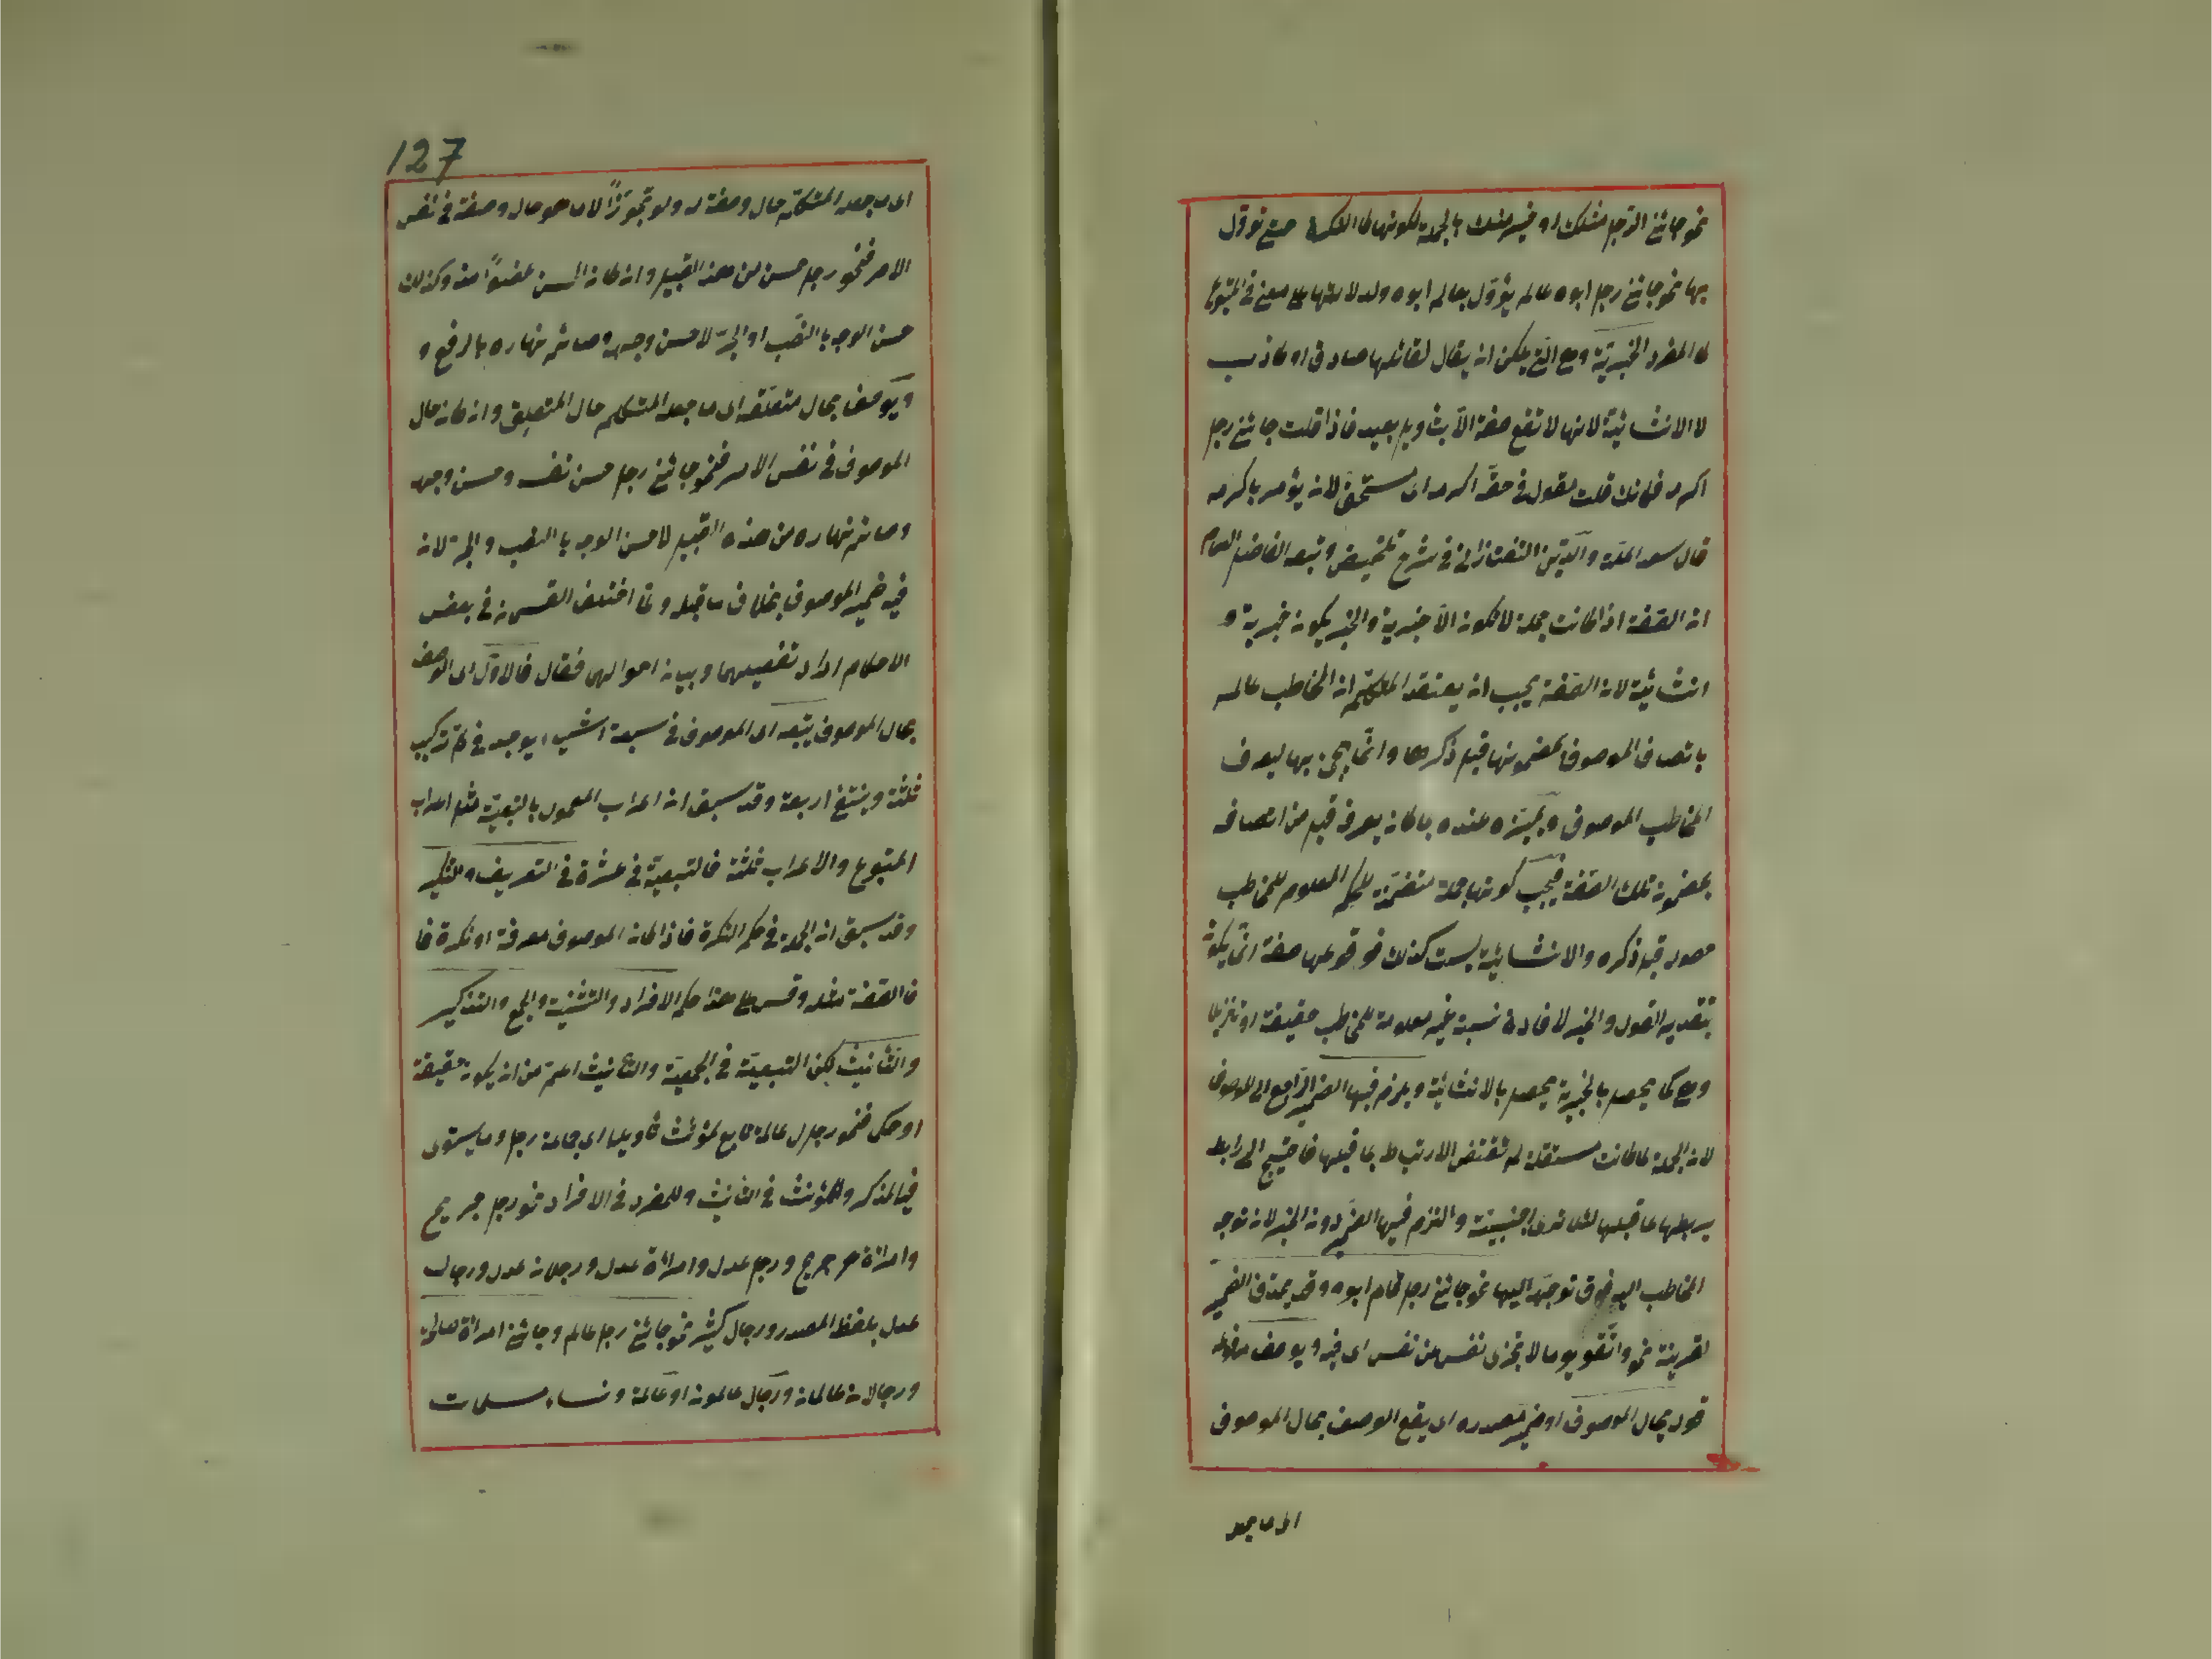 نحو جائنى الرجل مثلك او غير مثلك بالجملة لكونها كالنكرة حتى تؤول
بها نحو جائنى رجل ابوه عالم يؤول بعالم ابوه ولدلالتها على معنى فى المتبوع
كالمفرد الخبرية وهى التى يمكن ان يقال لقائلها صادق او كاذب
لا الانشائية لانها لا تقع صفة الا بتأويل بعيد فاذا قلت جائنى رجل
اكرمه فكانك قلت مقول فى حقه اكرمه اى مستحق لان يؤمر باكرمه
قال سعد الملة والدين التفتازانى فى شرح تلخيص وتبعه الفاضل العصام
ان الصفة اذا كانت جملة لا تكون الا خبرية والخبر يكون خبرية و
انشائية لان الصفة يجب ان يعتقد المتكلم ان المخاطب عالم
باتصاف الموصوف بمضمونها قبل ذكرها وانما يجئ بها ليعرف
المخاطب الموصوف ويميزه عنده بما كان يعرفه قبل من اتصافه
بمضمون تلك الصفة فيجب كونها جملة متضمنة للحكم المعلوم للمخاطب
حصوله قبل ذكره والانشائية ليست كذلك فوقوعها صفة انما يكون
بتقدير القول والخبر لافادة نسبة غير معلومة للمخاطب حقيقة او تنزيلا
وهى كما يحصل بالخبرية يحصل بالانشائية ويلزم فيها الضمير الراجع الى الموصوف
لان الجملة لما كانت مستقلة لم تقتض الارتباط بما قبلها فاحتيج الى رابط
يربطها بما قبلها لئلا اجنبية والتزم فيها الضمير دون الخبر لان توجه
المخاطب اليه فوق توجه اليها نحو جائنى رجل قام ابوه وقد يحذف الضمير
لقرينة نحو واتقو يوما لا تجزى نفس عن نفس اى فيه ويوصف
قوله بحال الموصوف او ضمير مصدره اى يقع الوصف بحال الموصوف
اى ما جعله
127
اى ما جعله المتكلم حال وصفة له ولو تجوزاً لا ما هو حال وصفة فى نفس
الامر فنحو رجل حسن من هذا القبيل وان كان الحسن عضواً منه وكذلك
حسن الوجه بالنصب او الجر لا حسن وجهه وصائم نهاره بالرفع و
ويوصف بحال متعلقه اى ما جعله المتكلم حال المتعلق وان كان حال
الموصوف فى نفس الامر فنحو جائنى رجل حسن نفسه وحسن وجهه
وصائم نهاره من هذه القبيل لا حسن الوجه بالنصب والجر لان
فيه ضمير الموصوف بخلاف ما قبله ولما اختلف القسمان فى بعض
الاحكام اراد تفصيلهما وبيان احوالهما فقال فالاول اى الوصف
بحال الموصوف يتبعه اى الموصوف فى سبعة اشياء يوجد فى كل تركيب
ثلثة وينتفى اربعة وقد سبق ان اعراب المعمول بالتبعية مثل اعراب
المتبوع والاعراب ثلثة فالتبعية فى عشرة فى التعريف والتنكير
وقد سبق ان الجملة فى حكم النكرة فاذا كان الموصوف معرفة او نكرة فا
فالصفة مثله وقس على هذا حكم الافراد والتثنية والجمع والتذكير
والتأنيث لكن التبعية فى الجمعية والتأنيث اعم من ان يكون حقيقة
او حكما فنحو رجال عالمة تابع لمؤنث تأويلا اى جماعة رجل وما يستوى
فيه المذكر والمؤنث فى التأنيث وللمفرد فى الافراد نحو رجل جريح
وامرأة جريح ورجل عدل وامرأة عدل ورجلان عدل ورجال
عدل بلفظ المصدر ورجال كثير نحو جائنى رجل عالم وجائنى امرأة صالحة
ورجلان عالمان ورجال عالمون او عالمة ونساء مسلمات